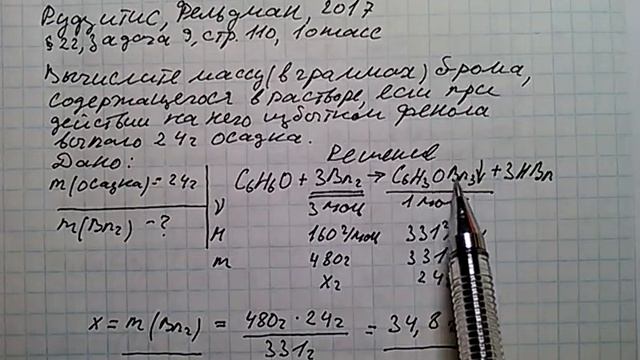 Рудзитис, Фельдман, 2017
§22, задача 9, стр. 110, 10 класс
Вычислите массу (в граммах) брома,
содержащегося в растворе, если при
действии на него избытком фенола
выпало 24г осадка.
Дано:
Решение
m(осадка) = 24г
m(Br₂) - ?
C₆H₆O + 3Br₂ → C₆H₃OBr₃↓ + 3HBr
ν 3 моль 1 мо
M 160г/моль 331г
m 480г 331
xг 24
x = m(Br₂) = 480г · 24г / 331г = 34,8